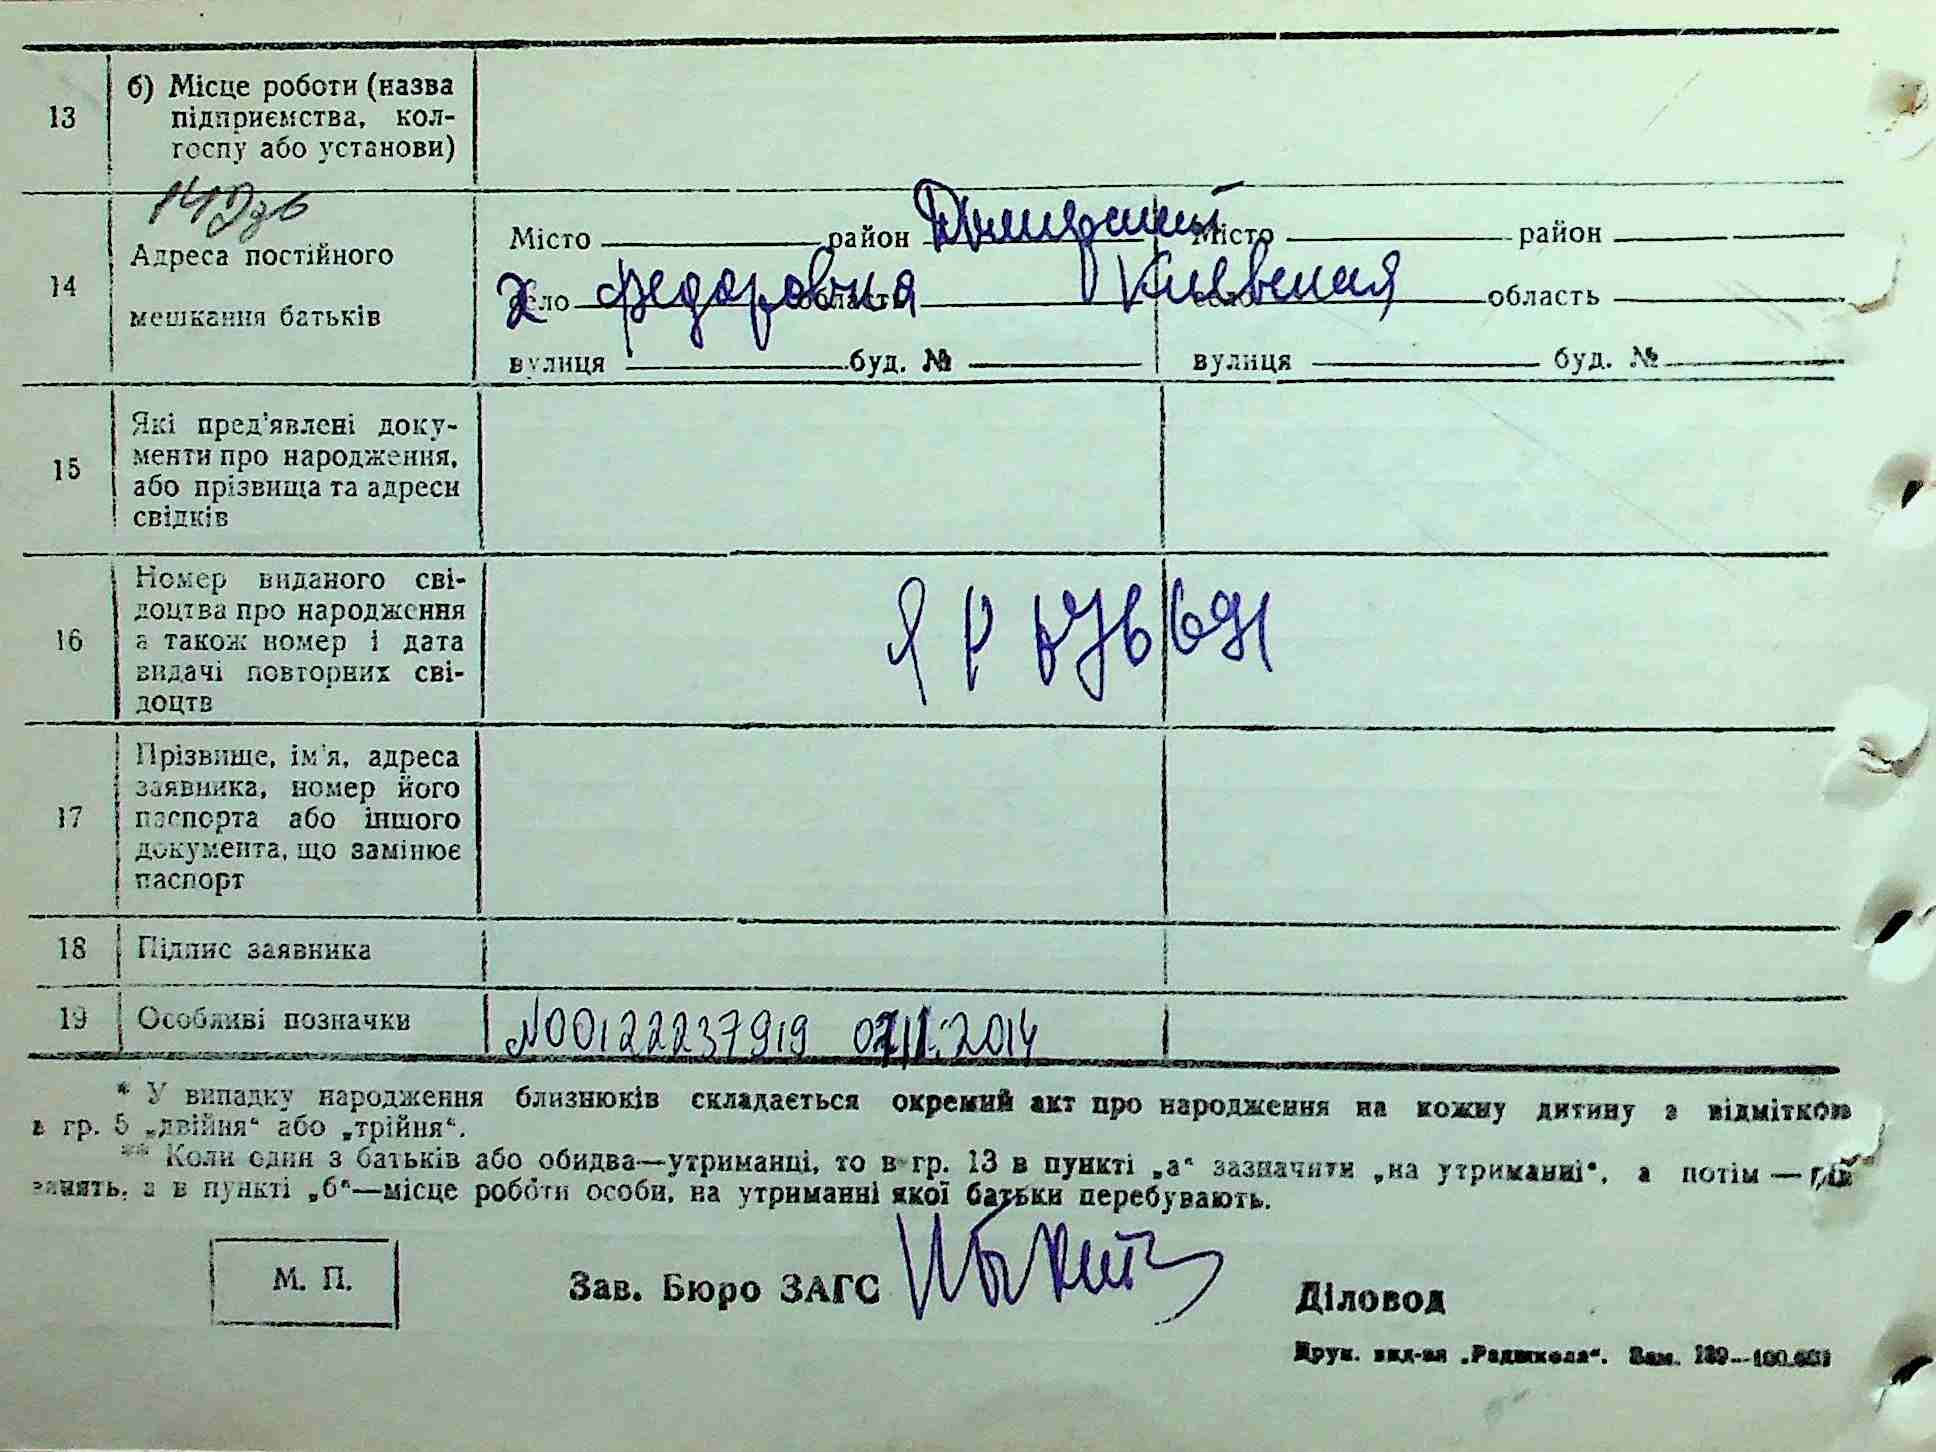 13
б) Місце роботи (назва
підприємства, кол-
госпу або установи)
14
Адреса постійного
мешкання батьків
Місто район Місто район
х село Федоровка область Киевская село область
вулиця буд. № вулиця буд. №
15
Які пред'явлені доку-
менти про народження,
або прізвища та адреси
свідків
16
Номер виданого сві-
доцтва про народження
а також номер і дата
видачі повторних сві-
доцтв
ЯР
17
Прізвище, ім'я, адреса
заявника, номер його
паспорта або іншого
документа, що замінює
паспорт
18 Підпис заявника
19 Особливі позначки №00122237919 2014
* У випадку народження близнюків складається окремий акт про народження на кожну дитину з відміткою
в гр. 5 „двійня“ або „трійня“.
** Коли один з батьків або обидва—утриманці, то в гр. 13 в пункті „а“ зазначити „на утриманні“, а потім —
занять, а в пункті „б“—місце роботи особи, на утриманні якої батьки перебувають.
М. П.
Зав. Бюро ЗАГС
Діловод
Друк. вид-ва „Радшкола“. Зам.